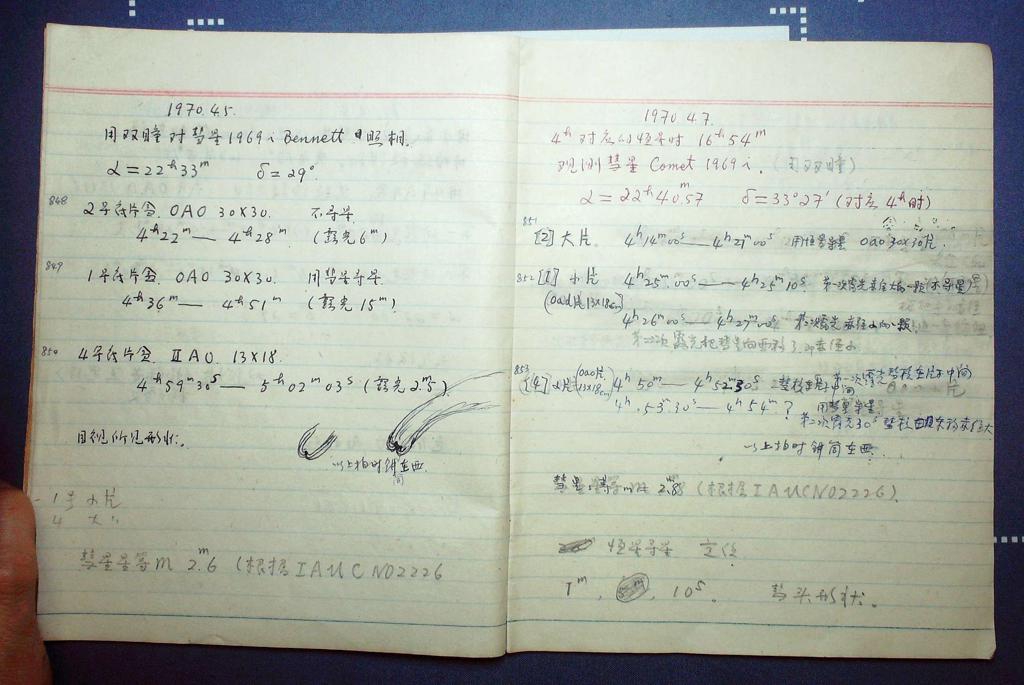 1970.4.5.
用双瞳对彗星1969i Bennett 照相.
α=22ʰ33ᵐ δ=29°
848
2号底片盒. OAO 30X30. 不导星.
4ʰ22ᵐ — 4ʰ28ᵐ. (露光6ᵐ)
849
1号底片盒. OAO 30X30. 用彗星导星.
4ʰ36ᵐ — 4ʰ51ᵐ (露光15ᵐ)
850
4号底片盒. ⅡAO. 13X18.
4ʰ59ᵐ30ˢ — 5ʰ02ᵐ03ˢ (露光2ᵐ.5)
目视所见形状:
以上拍时镜筒东西
1号小片
4 大 "
彗星星等m 2ᵐ.6 (根据IAUCNO2226
1970.4.7.
4ʰ对应的恒星时 16ʰ54ᵐ
观测彗星 Comet 1969i. (用双瞳)
α=22ʰ40ᵐ.57 δ=33°27′(对应4ʰ时)
851
[2] 大片. 4ʰ14ᵐ00ˢ — 4ʰ21ᵐ00ˢ 用恒星导星 OaO 30X30片.
852 [1] 小片 4ʰ25ᵐ00ˢ — 4ʰ25ᵐ10ˢ.
(OaO片13X18cm) 4ʰ26ᵐ00ˢ — 4ʰ27ᵐ00ˢ 第二次露光
第二次露光把彗星向西移
853
[4] 小片 (OaO片 13X18cm) 4ʰ50ᵐ — 4ʰ52ᵐ30ˢ
4ʰ.53ᵐ30ˢ — 4ʰ54ᵐ? 用彗星导星.
第二次露光30ˢ
以上拍时镜筒东西.
彗星:等m=2ᵐ.85 (根据IAUCNO2226).
恒星导星 定位
1ᵐ. 10ˢ. 彗头形状.